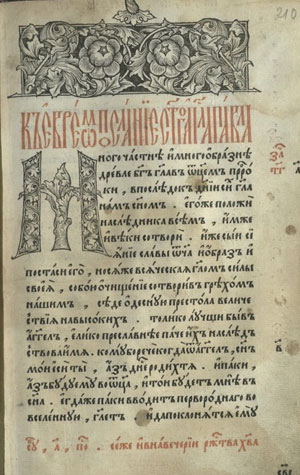 210
КЪ ЕВРЕѠМ ПОСЛАНЇЕ СТ҃ГО АПⷭ҇ЛА ПАВЛА
Много частнѣ и много ѡбразнѣ
древле бг҃ъ глав ѿцем прⷪ҇
ки , впослѣдокъ дн҃їи сих гла
нам сн҃ом . егоже положи
наслѣдника всѣм , имже
и вѣки сотвори . иже сыи сї
ѧнїе славы и ѡбразъ и
постаси его , носѧже всѧческаѧ гл҃ом силы
своеѧ , собою ѡчищенїе сотворивъ грѣхом
нашим , сѣде ѡдесную престола величе
ствїѧ на высоких . толико лучши бывъ
аггел , елико преславнѣе паче их наслѣд
ствова имѧ . кому бо рече когда ѿ аггел , сн҃ъ
мои еси ты , азъ днⷭ҇е родих тѧ . и паки ,
азъ буду ему во ѿц҃а , и тои будетъ мнѣ въ
сн҃а . егда же паки вводит первороднаго во
вселенную , гл҃етъ . и да поклонѧтсѧ ему